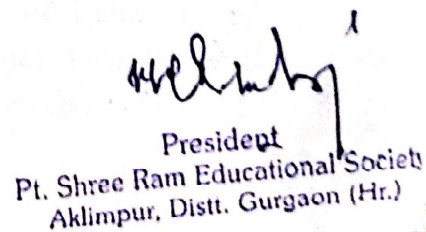 President
Pt. Shree Ram Educational Society
Aklimpur, Distt. Gurgaon (Hr.)